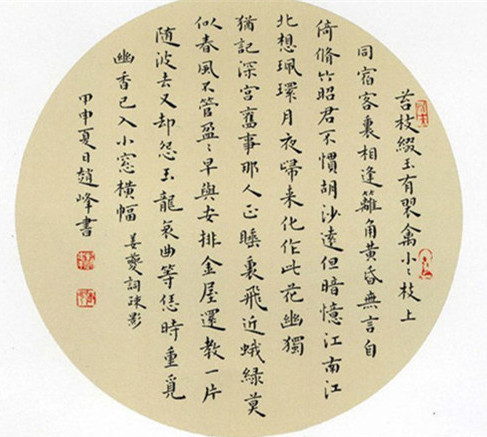 苔枝綴玉有翠禽小〻枝上
同宿客裏相逢籬角黃昏無言自
倚脩竹昭君不慣胡沙遠但暗憶江南江
北想珮環月夜歸来化作此花幽獨
猶記深宮舊事那人正睡裏飛近蛾綠莫
似春風不管盈〻早與安排金屋還教一片
隨波去又却怨玉龍哀曲等恁時重覓
幽香已入小窓橫幅 姜夔詞疎影
甲申夏日趙峰書